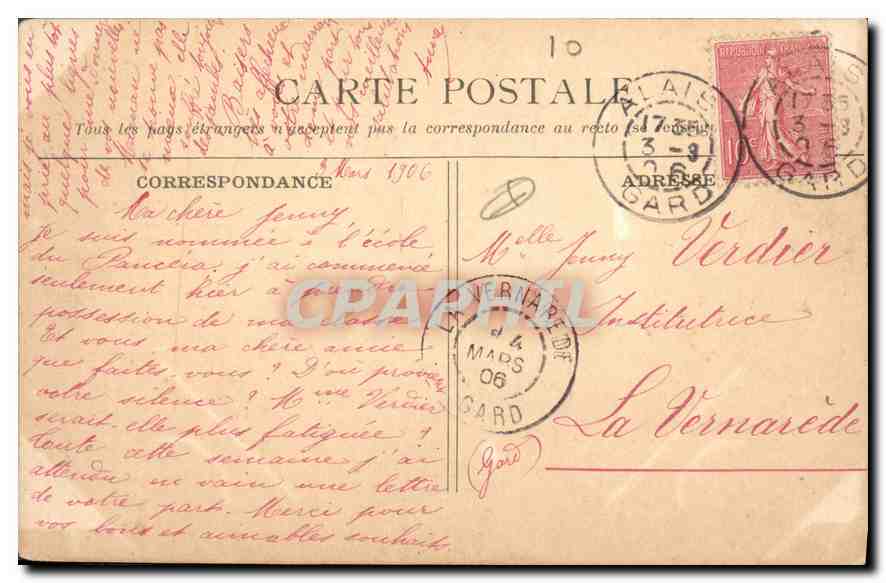 10
CARTE POSTALE
Tous les pays étrangers n'acceptent pas la correspondance au recto (se renseigner
CORRESPONDANCE
ADRESSE
Mars 1906
Ma chère Jenny,
Je suis nommée à l'école
du Panséra. j'ai commencé
seulement hier à prendre
possession de ma classe.
Et vous ma chère amie
que faites vous? D'où provient
votre silence? Mme Verdier
serait-elle plus fatiguée?
Toute cette semaine j'ai
attendu en vain une lettre
de votre part. Merci pour
vos bons et aimables souhaits
mais je vous en
prie au plus tôt
quelques lignes
pour me donner
de vos nouvelles.
Maman ne
Baisers
Melle Jenny Verdier
Institutrice
La Vernarède
(Gard)
REPUBLIQUE FRANÇAISE
10c
ALAIS
17 35
3 - 3
06
GARD
ALAIS
17 35
3 - 3
GARD
LA VERNAREDE
4
MARS
06
GARD
CPAPHIL